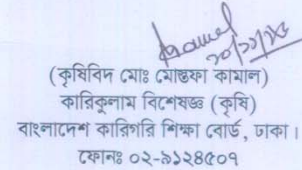 ২০/১১/১৬
(কৃষিবিদ মোঃ মোস্তফা কামাল)
কারিকুলাম বিশেষজ্ঞ (কৃষি)
বাংলাদেশ কারিগরি শিক্ষা বোর্ড, ঢাকা।
ফোনঃ ০২-৯১২৪৫০৭